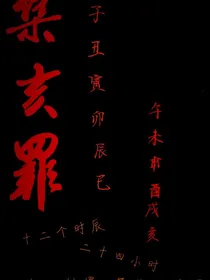 亥罪
子丑寅卯辰巳
午未申酉戌亥
十二个时辰
二十四小时